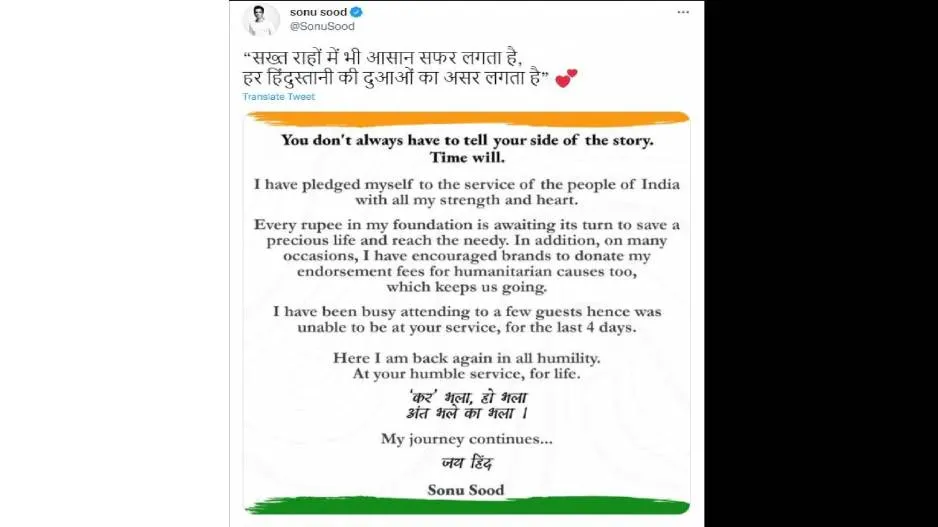 sonu sood
@SonuSood
“सख्त राहों में भी आसान सफर लगता है,
हर हिंदुस्तानी की दुआओं का असर लगता है”
Translate Tweet
You don't always have to tell your side of the story.
Time will.
I have pledged myself to the service of the people of India
with all my strength and heart.
Every rupee in my foundation is awaiting its turn to save a
precious life and reach the needy. In addition, on many
occasions, I have encouraged brands to donate my
endorsement fees for humanitarian causes too,
which keeps us going.
I have been busy attending to a few guests hence was
unable to be at your service, for the last 4 days.
Here I am back again in all humility.
At your humble service, for life.
'कर' भला, हो भला
अंत भले का भला ।
My journey continues...
जय हिंद
Sonu Sood